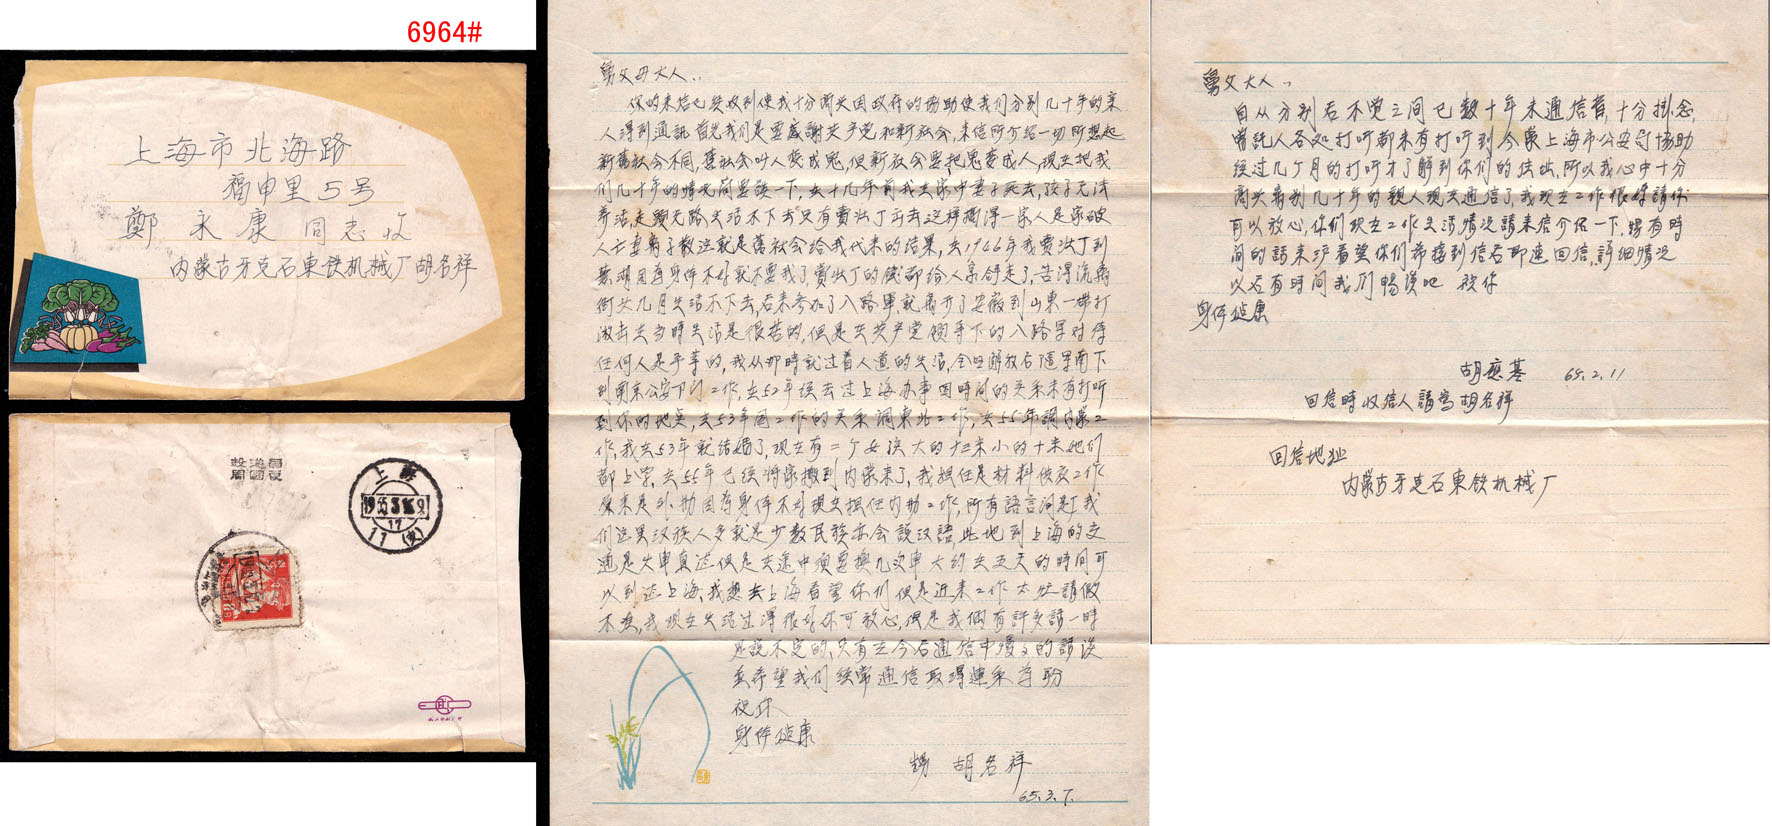 6964#
上海市北海路
福申里5号
鄭永康同志收
内蒙古牙克石東铁机械厂胡名祥
上海
11
舅父母大人：
你的来信已经收到使我十分高兴因政府的协助使我们分别几十年的亲
人得到通訊首先我们是要感謝共产党和新社会，来信所介绍一切所想起
新舊社会不同，舊社会叫人变成鬼，但新社会要把鬼变成人，现在把我
们几十年的情况简要談一下，去十几年前我去家中妻子死去，孩子无法
养活，走頭无路，生活不下去只有賣出丁
人亡妻離子散这就是舊社会给我代来的结果，去1946年我賣出丁到
因有身体不好就不要我了，賣出丁的錢都给人家
街头几月生活不下去，后来参加了八路軍，就离开了安徽到山東一帶打
游击去当時生活是很苦的，但是去共产党领导下的八路軍对待
任何人是平等的，我从那時就过着人道的生活，全国解放后随軍南下
到南京公安部门工作，去52年经去过上海办事因時间的关系未有打听
到你的地点，去53年因工作的关系調東北工作，去55年調内蒙工
作，我去53年就结婚了，现在有二个女孩大的十三来小的十来她们
都上学，去55年已经将家搬到内蒙来了，我担任是材料供应工作
原来是外勤因有身体不好现在担任内勤工作，所有語言问是丁我
们这里汉族人多就是少数民族亦会說汉語，此地到上海的交
通是火車直达但是去途中须要换几次車大约去五天的時间可
以到达上海，我想去上海看望你们但是近来工作太忙請假
不准，我现在生活过得很好你可放心，但是我俩有許多話一時
是說不完的，只有去今后通信中慢慢的請談
並希望我们经常通信取得連系为盼
祝你
身体健康
甥 胡名祥
65.3.7.
舅父大人：
自从分别后不觉之间已数十年未通信音，十分掛念，
曾託人各处打听都未有打听到今蒙上海市公安局协助
经过几个月的打听才了解到你们的住址，所以我心中十分
高兴离别几十年的親人现去通信了，我现在工作很好請你
可以放心，你们现在工作生活情况請来信介绍一下，媽有時
间的話来沪看望你们希接到信后即速回信，詳细情况
以后有時间我们暢談吧 祝你
身体健康
胡應基 65.2.11
回信時收信人請寫胡名祥
回信地址
内蒙古牙克石東铁机械厂